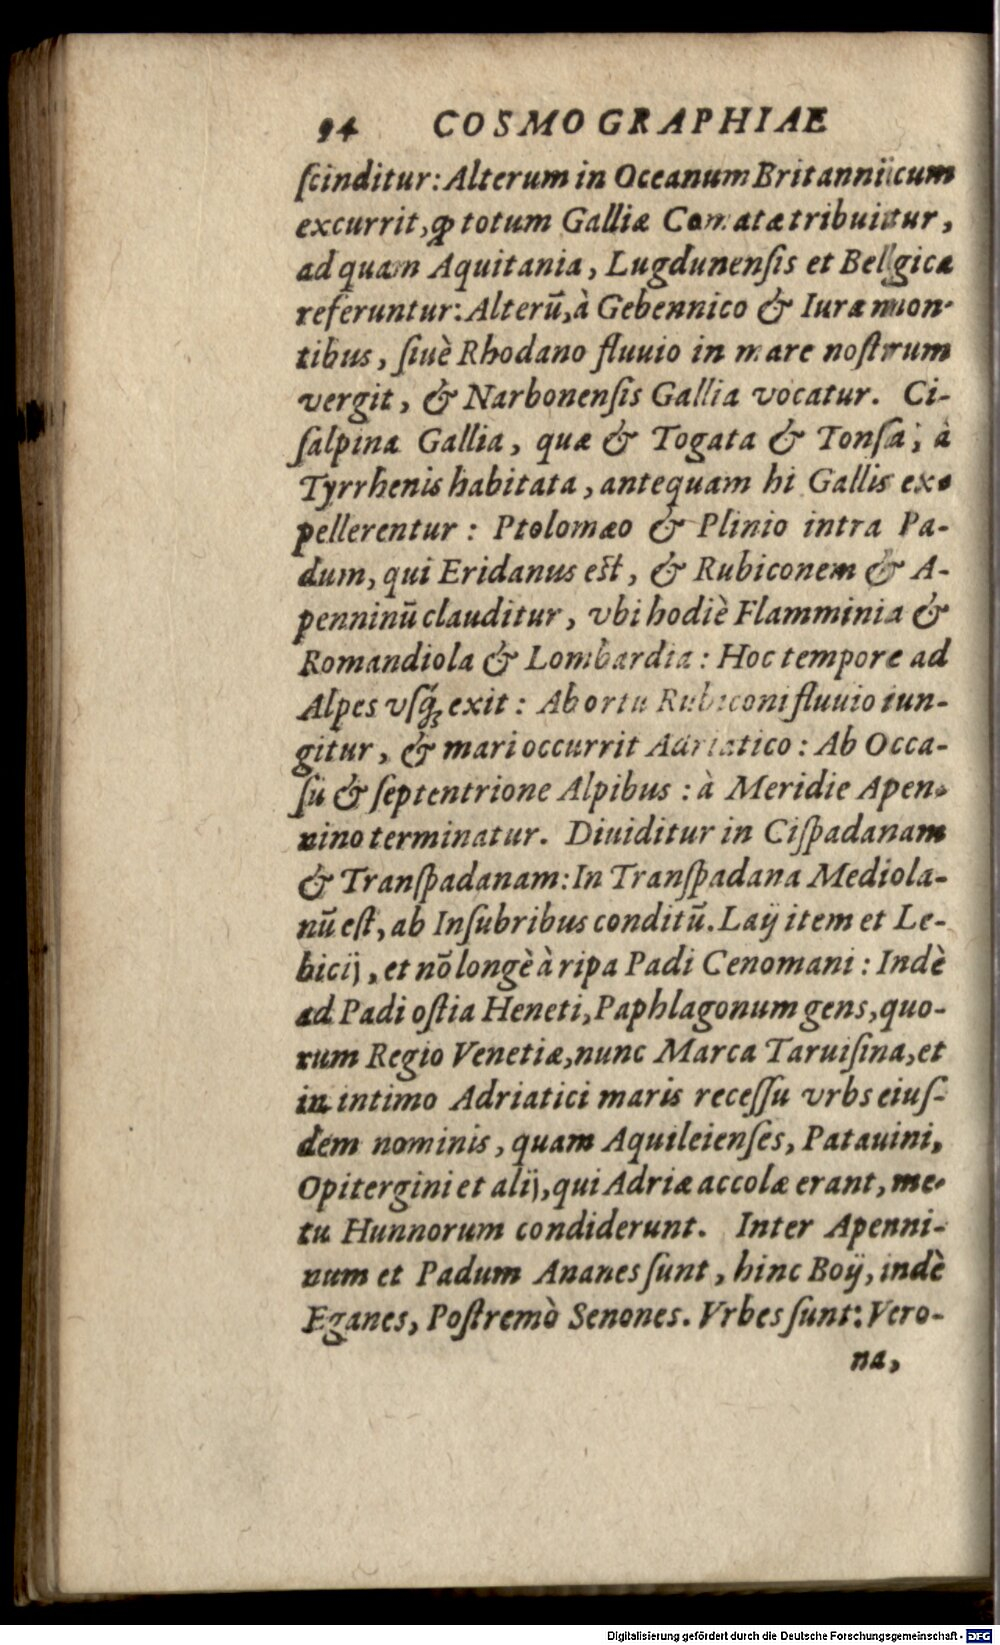 94 COSMOGRAPHIAE
ſcinditur: Alterum in Oceanum Britanniicum
excurrit, ꝙ totum Galliæ Comatæ tribuitur,
ad quam Aquitania, Lugdunenſis et Belgicæ
referuntur: Alterū, à Gebennico & Iuræ mon-
tibus, ſiuè Rhodano fluuio in mare noſtrum
vergit, & Narbonenſis Gallia vocatur. Ci-
ſalpina Gallia, quæ & Togata & Tonſa; à
Tyrrhenis habitata, antequam hi Gallis ex-
pellerentur: Ptolomæo & Plinio intra Pa-
dum, qui Eridanus eſt, & Rubiconem & A-
penninū clauditur, vbi hodiè Flamminia &
Romandiola & Lombardia: Hoc tempore ad
Alpes vſq́ꝫ exit: Ab ortu Rubiconi fluuio iun-
gitur, & mari occurrit Adriatico: Ab Occa-
ſu & ſeptentrione Alpibus: à Meridie Apen-
nino terminatur. Diuiditur in Ciſpadanam
& Tranſpadanam: In Tranſpadana Mediola-
nū eſt, ab Inſubribus conditū. Laij item et Le-
bicij, et nō longè à ripa Padi Cenomani: Indè
ad Padi oſtia Heneti, Paphlagonum gens, quo-
rum Regio Venetiæ, nunc Marca Taruiſina, et
in intimo Adriatici maris receſſu vrbs eiuſ-
dem nominis, quam Aquileienſes, Patauini,
Opitergini et alij, qui Adriæ accolæ erant, me-
tu Hunnorum condiderunt. Inter Apenni-
num et Padum Ananes ſunt, hinc Boij, indè
Eganes, Poſtremò Senones. Vrbes ſunt: Vero-
na,
Digitalisierung gefördert durch die Deutsche Forschungsgemeinschaft - DFG